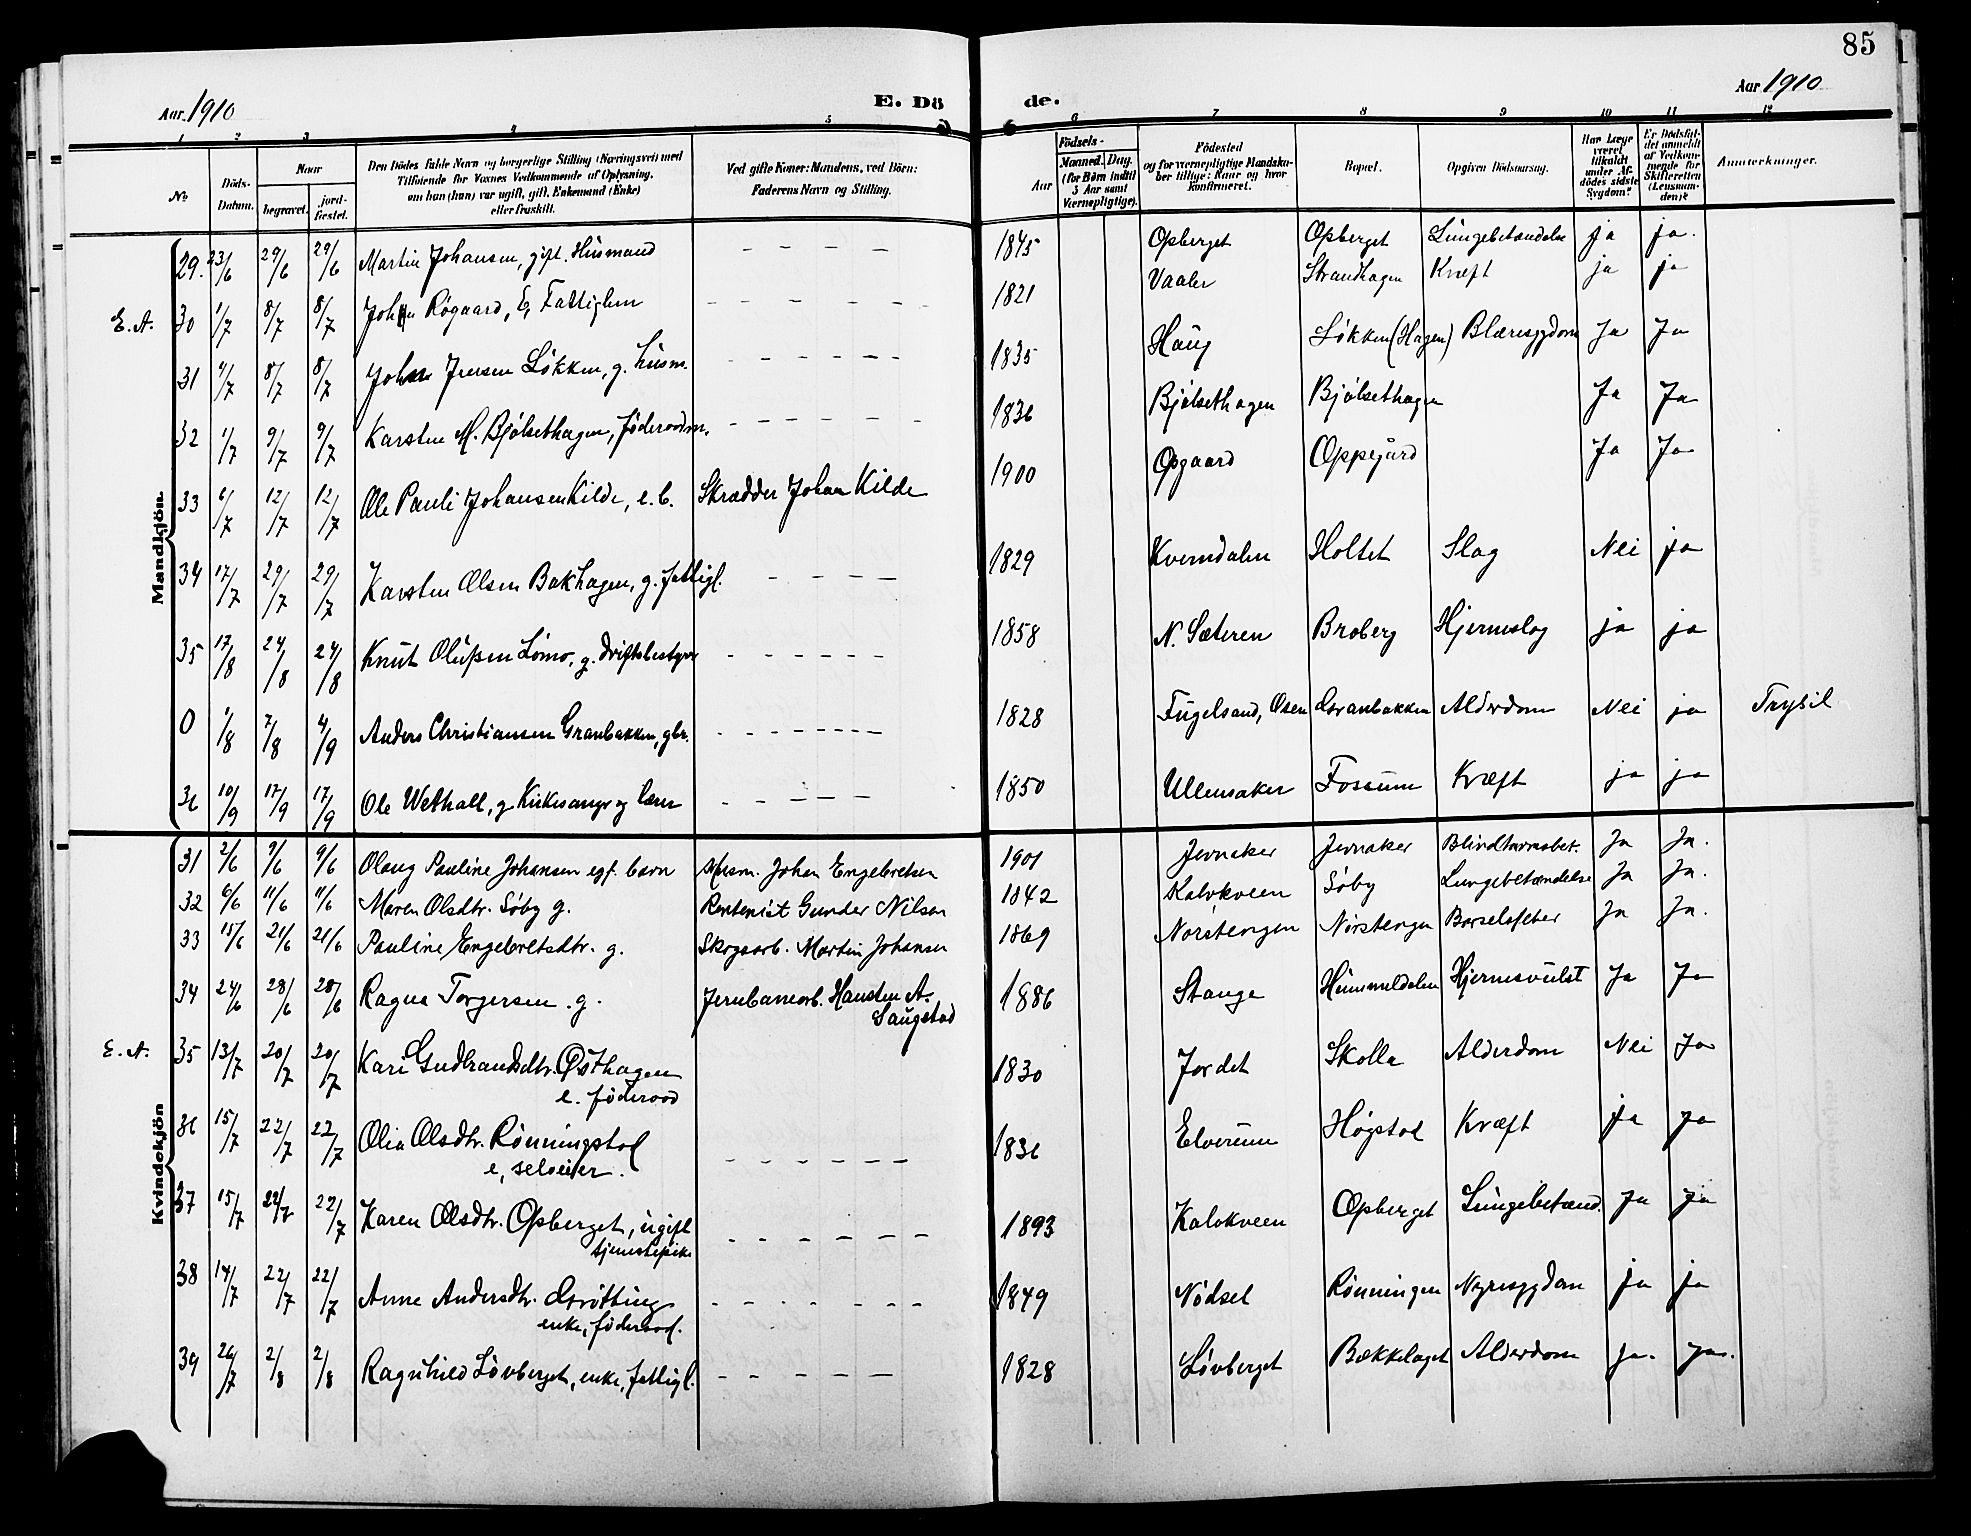 85
Aar 1910 E. Dö de. Aar 1910
1 2 3 4 5 6 7 8 9 10 11 12
No. Döds-Datum. Naar begravet. jord-fæstet. Den Dödes fulde Navn og borgerlige Stilling (Næringsvei) med Tilföiende for Voxnes Vedkommende af Oplysning, om han (hun) var ugift, gift, Enkemand (Enke) eller fraskilt. Ved gifte Koner: Mandens, ved Börn: Faderens Navn og Stilling. Födsels- Aar Maaned. Dag. (for Börn indtil 5 Aar samt Værnepligtige). Födested og for værnepligtige Mandskaber tillige: Naar og hvor konfirmeret. Bopæl. Opgiven Dödsaarsag. Har Læge været tilkaldt under Afdödes sidste Sygdom? Er Dödsfaldet anmeldt af Vedkommende for Skifteretten (Lensmanden)? Anmærkninger.
Mandkjön.
29. 23/6 29/6 29/6 Martin Johansen, gift. Husmand – – – – 1845 Opberget Opberget Lungebetændelse ja ja.
E. A. 30 1/7 8/7 8/7 Johan Rögaard, E, Fattiglem – – – – – – 1821 Vaaler Strandhagen Kræft ja ja
31 4/7 8/7 8/7 Johan Jensen Løkken, g. husm. – – – – – – 1835 Haug Løkken (Hagen) Blæresygdom Ja Ja
32 1/7 9/7 9/7 Karsten M. Bjølsethagen, föderaadm. – – – – – 1836 Bjølsethagen Bjølsethagen Ja Ja
33 6/7 12/7 12/7 Ole Pauli Johansen Kilde, e. b. Skrædder Johan Kilde 1900 Opgaard Oppegård Ja Ja
34 17/7 29/7 29/7 Karsten Olsen Bakhagen, g. fattigl. – – – – 1829 Kverndalen Holtet Slag Nei ja
35 17/8 24/8 24/8 Knut Olufsen Lømo, g. driftsbestyrer – – – – – – 1858 N. Sæteren Broberg Hjerneslag ja ja
0 1/8 7/8 4/9 Anders Christiansen Granbakken, gbr. – – – – – – – 1828 Fugelsand, Osen Granbakken Alderdom Nei ja Trysil
36 10/9 17/9 17/9 Ole Wethall, g. Kirkesanger og lærer – – – – – 1850 Ullensaker Fossum Kræft ja ja
Kvindekjön
31 2/6 9/6 9/6 Olaug Pauline Johansen egf. barn Husm. Johan Engebretsen 1901 Jernaker Jernaker Blindtarmsbet. Ja Ja.
32 6/6 11/6 11/6 Maren Olsdtr. Søby g. Rentenist Gunder Nilsen 1842 Kalvkveen Søby Lungebetændelse Ja Ja.
33 15/6 21/6 21/6 Pauline Engebretsdtr. g. Skogsarb. Martin Johansen 1869 Nørstengen Nørstengen Barselsfeber Ja Ja.
34 24/6 28/6 28/6 Ragna Torgersen g. Jernbanearb. Hansten A. Saugstad 1886 Stange Himmeldalen Hjernesvulst Ja Ja
E. A. 35 13/7 20/7 20/7 Kari Gudbrandsdtr. Østhagen
e. föderaad 1830 Jordet Skolla Alderdom Nei Ja
36 15/7 22/7 22/7 Olia Olsdtr. Rønningstad
e, selveier. – – – – – – 1836 Elverum Høgstad Kræft ja ja
37 15/7 22/7 22/7 Karen Olsdtr. Opberget, ugift
tjenestepike – – – – – – 1893 Kalvkveen Opberget Lungebetænd. Ja ja
38 14/7 22/7 22/7 Anne Andersdtr. Grøtting
enke, föderaad. – – – – – – – 1849 Nödset Rønningen Nyresygdom ja ja
39 26/7 2/8 2/8 Ragnhild Løvberget, enke, fattigl. – – – – – 1828 Løvberget Bækkelaget Alderdom ja. ja.